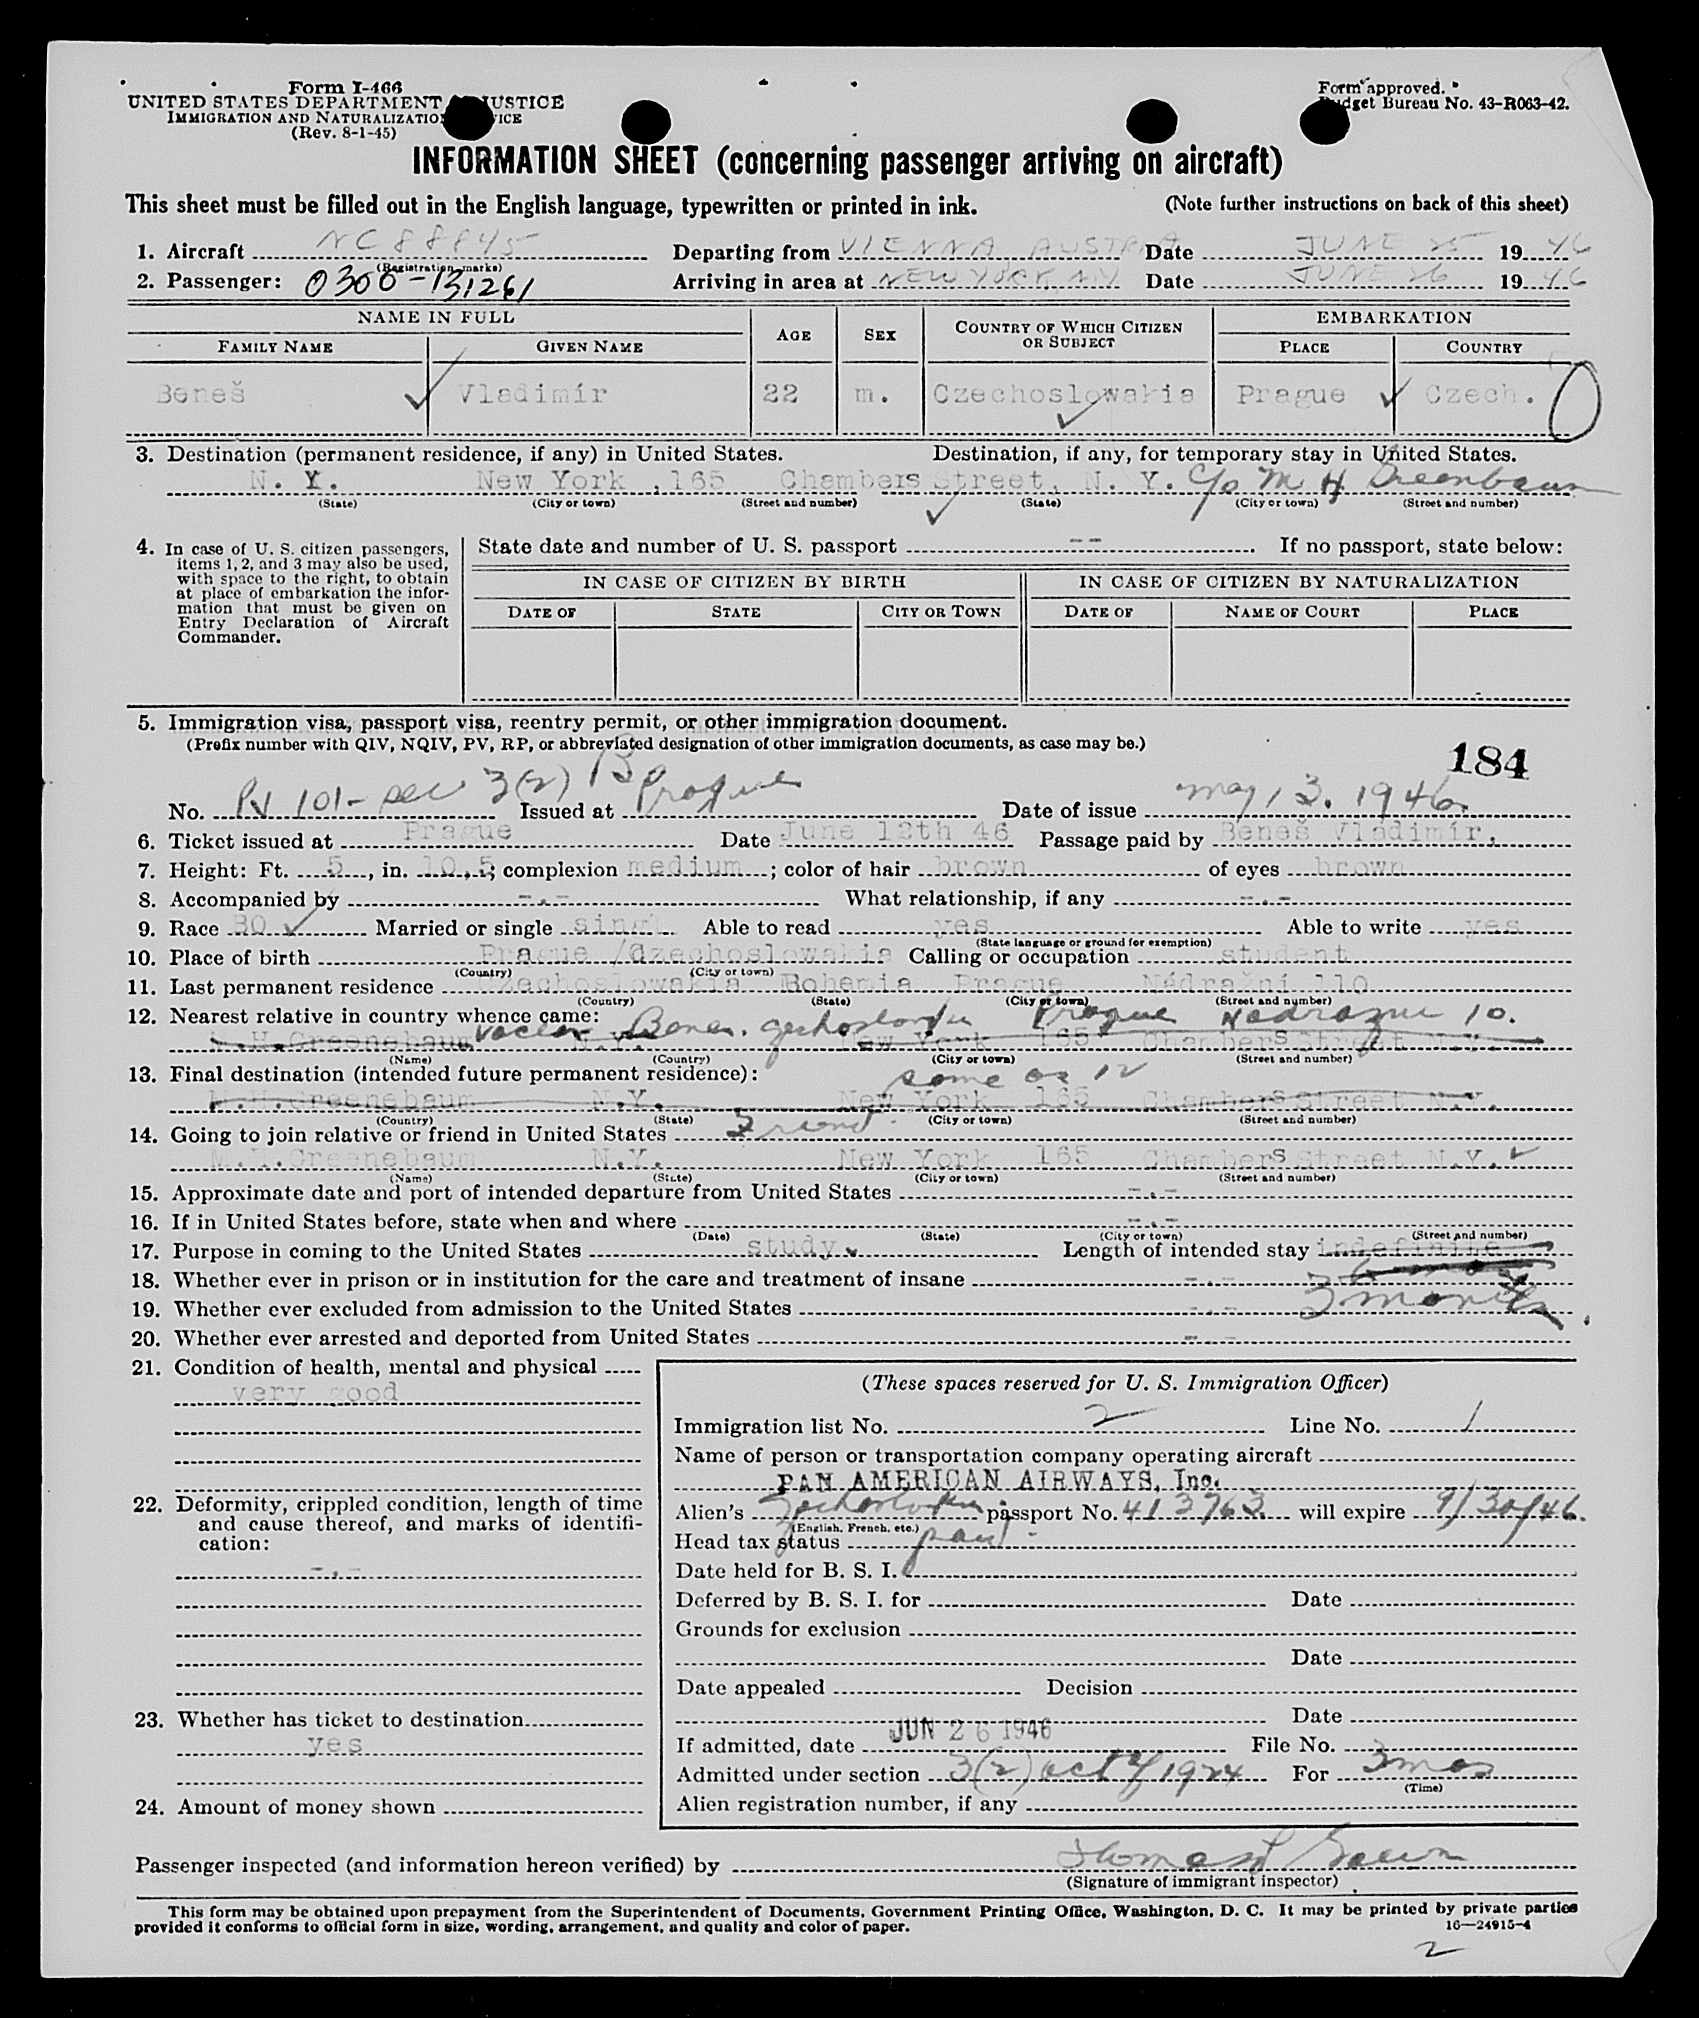 Form I-466
UNITED STATES DEPARTMENT JUSTICE
IMMIGRATION AND NATURALIZATION
(Rev. 8-1-45)
Form approved.
Budget Bureau No. 43-R063-42.
INFORMATION SHEET (concerning passenger arriving on aircraft)
This sheet must be filled out in the English language, typewritten or printed in ink. (Note further instructions on back of this sheet)
1. Aircraft NC88845 Departing from VIENNA AUSTRIA Date JUNE 25 1946
(Registration marks)
2. Passenger: 0300-131261 Arriving in area at NEW YORK, NY Date JUNE 26 1946
NAME IN FULL AGE SEX COUNTRY OF WHICH CITIZEN OR SUBJECT EMBARKATION
FAMILY NAME GIVEN NAME PLACE COUNTRY
Beneš Vladimír 22 m. Czechoslowakia Prague Czech.
3. Destination (permanent residence, if any) in United States. Destination, if any, for temporary stay in United States.
N. Y. New York ,165 Chambers Street, N. Y. c/o M H Greenbaum
(State) (City or town) (Street and number) (State) (City or town) (Street and number)
4. In case of U. S. citizen passengers, items 1, 2, and 3 may also be used, with space to the right, to obtain at place of embarkation the information that must be given on Entry Declaration of Aircraft Commander.
State date and number of U. S. passport -- If no passport, state below:
IN CASE OF CITIZEN BY BIRTH IN CASE OF CITIZEN BY NATURALIZATION
DATE OF STATE CITY OR TOWN DATE OF NAME OF COURT PLACE
5. Immigration visa, passport visa, reentry permit, or other immigration document.
(Prefix number with QIV, NQIV, PV, RP, or abbreviated designation of other immigration documents, as case may be.)
184
No. PV 101- sec 3(2) B Issued at Prague Date of issue May 13, 1946.
6. Ticket issued at Prague Date June 12th 46 Passage paid by Beneš Vladimír.
7. Height: Ft. 5, in. 10,5; complexion medium; color of hair brown of eyes brown
8. Accompanied by -.- What relationship, if any -.-
9. Race BO Married or single singl Able to read yes Able to write yes
(State language or ground for exemption)
10. Place of birth Prague /Czechoslowakia Calling or occupation student
(Country) (City or town)
11. Last permanent residence Czechoslowakia Bohemia Prague Nádražní 110
(Country) (State) (City or town) (Street and number)
12. Nearest relative in country whence came: Vaclav Benes. Prague 10.
M.H.Greenebaum N.Y. New York 165 Chambers Street N.Y.
(Name) (Country) (City or town) (Street and number)
13. Final destination (intended future permanent residence): same as 12
M.H.Greenebaum N.Y. New York 165 Chambers Street N.Y.
(Country) (State) (City or town) (Street and number)
14. Going to join relative or friend in United States Friend
M.H.Greenebaum N.Y. New York 165 Chambers Street N.Y.
(Name) (State) (City or town) (Street and number)
15. Approximate date and port of intended departure from United States -.-
16. If in United States before, state when and where -.-
(Date) (State) (City or town) (Street and number)
17. Purpose in coming to the United States study. Length of intended stay indefinite
18. Whether ever in prison or in institution for the care and treatment of insane -.-
19. Whether ever excluded from admission to the United States -.- 3 months
20. Whether ever arrested and deported from United States -.-
21. Condition of health, mental and physical
very good
22. Deformity, crippled condition, length of time and cause thereof, and marks of identification:
-.-
23. Whether has ticket to destination
yes
24. Amount of money shown
(These spaces reserved for U. S. Immigration Officer)
Immigration list No. 2 Line No. 1
Name of person or transportation company operating aircraft
PAN AMERICAN AIRWAYS, Inc.
Alien's passport No. 413763 will expire 9/30/46.
(English, French, etc.)
Head tax status paid
Date held for B. S. I.
Deferred by B. S. I. for Date
Grounds for exclusion
Date
Date appealed Decision
Date
If admitted, date JUN 26 1946 File No.
Admitted under section 3(2) act of 1924 For 3 mos
(Time)
Alien registration number, if any
Passenger inspected (and information hereon verified) by
(Signature of immigrant inspector)
This form may be obtained upon prepayment from the Superintendent of Documents, Government Printing Office, Washington, D. C. It may be printed by private parties
provided it conforms to official form in size, wording, arrangement, and quality and color of paper. 16—24915-4
2